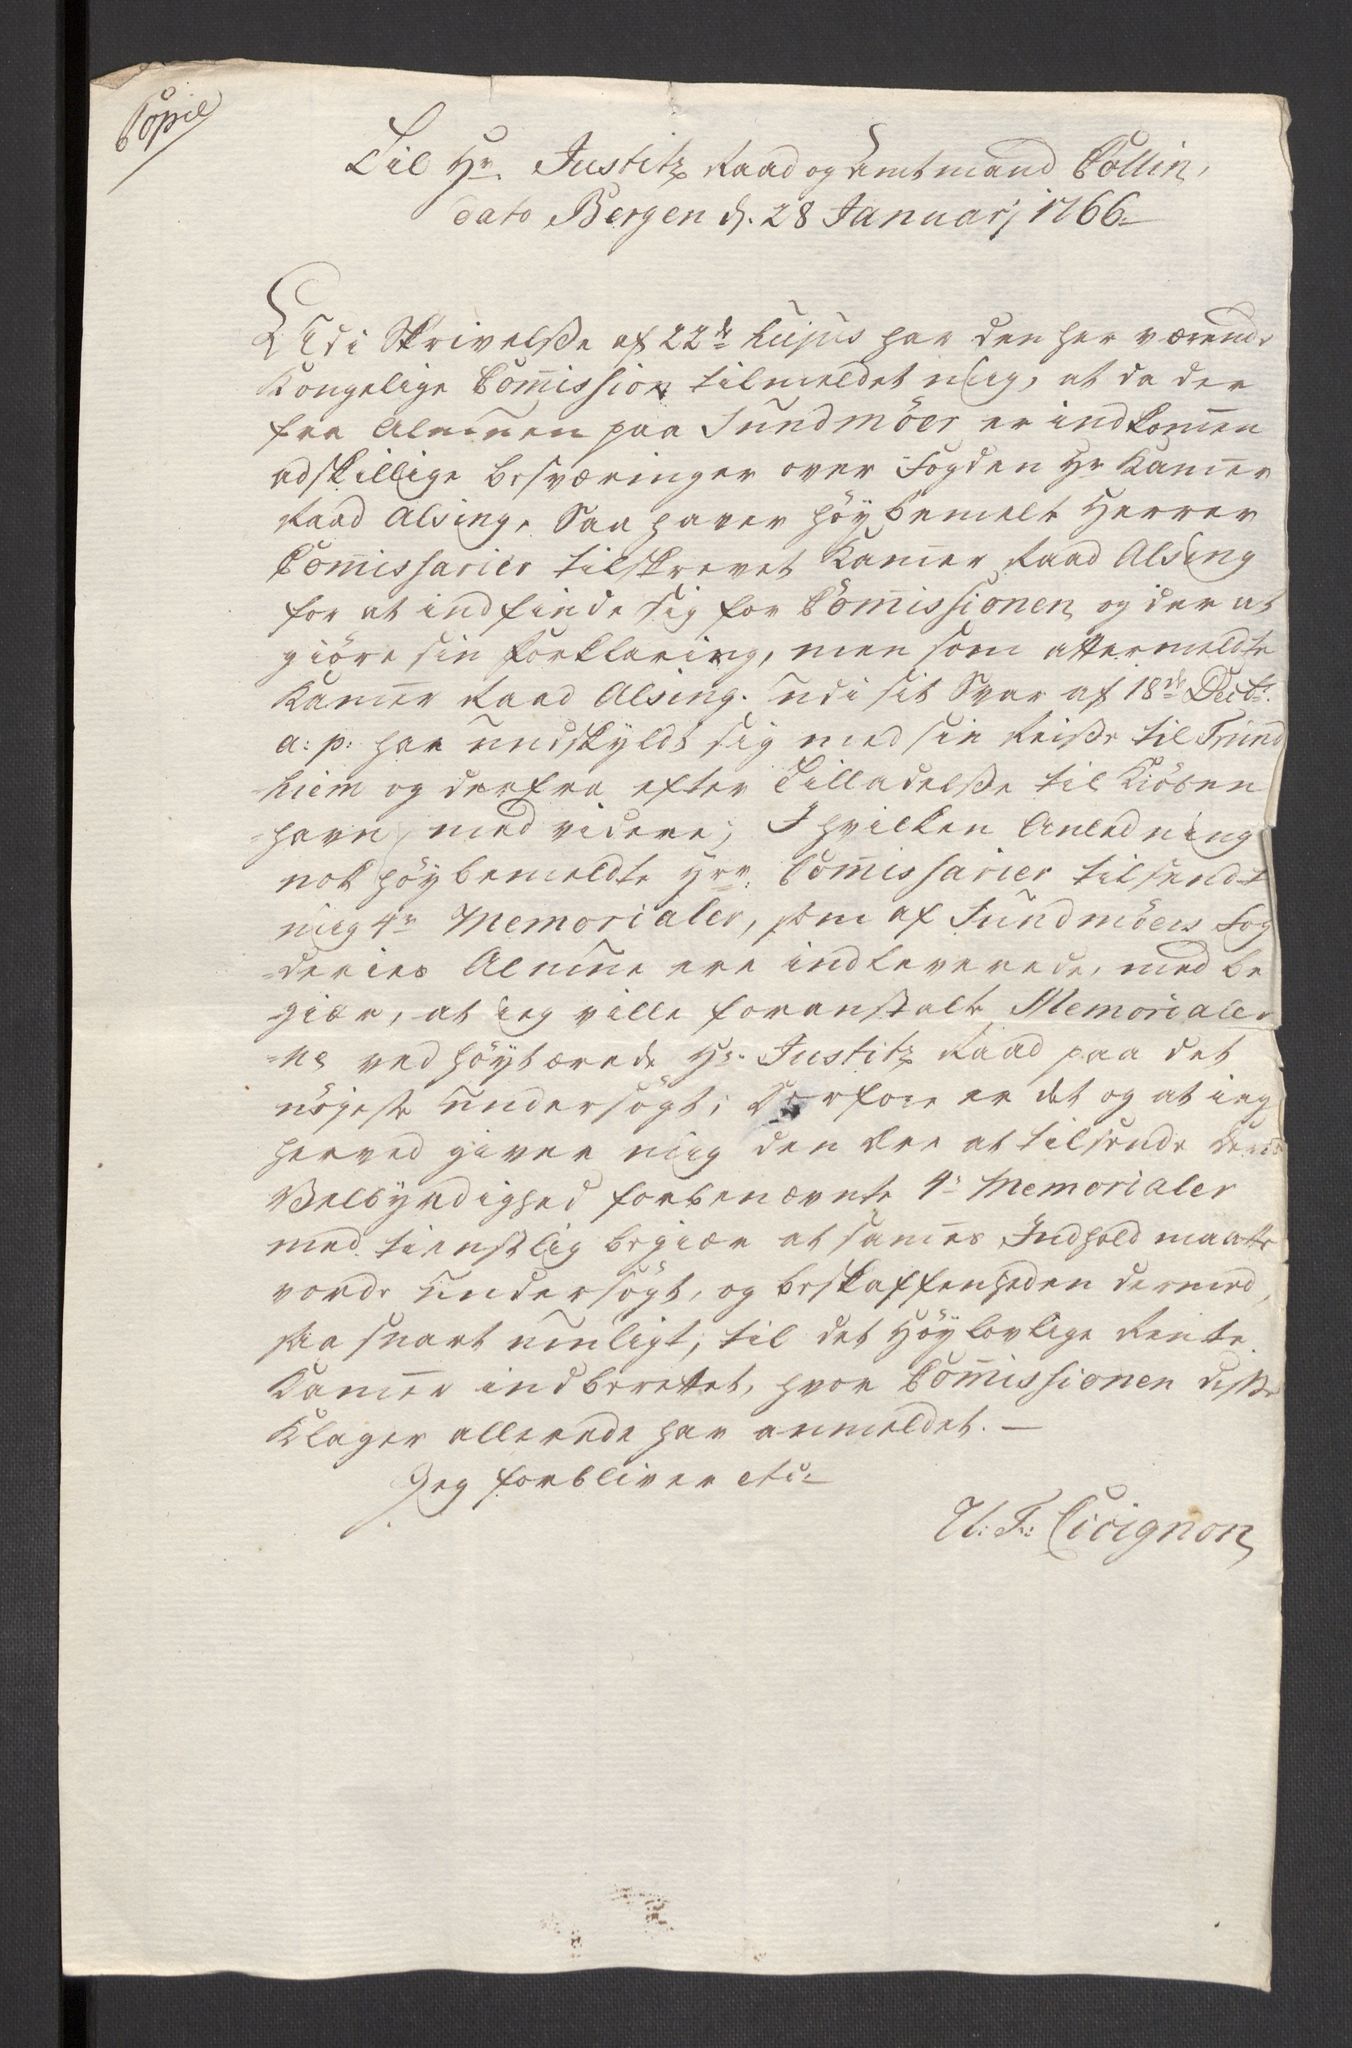 Copie
Til Hr. Justitz Raad og Amtmand Collin,
dato Bergen d. 28 Januarj 1766
Udi Skrivelsse af 22de hujus har den her værende
Kongelige Com̄ission tilmeldet mig, at da der
fra Almuen paa Sundmöer er indkom̄en
adskillige besværinger over Fogden Hr Kam̄er
Raad Alsing, Saa haver höybemelte Herrer
Com̄issarier tilskrevet Kam̄er Raad Alsing
for at indfinde sig for Com̄issionen og der at
giöre sin forklaring, men som attermeldte
Kam̄er Raad Alsing udi sit Svar af 18de Decbr.
a: p: har undskyldt sig med sin Reisse til Trund
hiem og derfra efter Tilladelsse til Kiöben
-havn, med videre; I hvilken Anledning
nok höybemeldte Hrr. Com̄issarier tilsendt
mig 4re Memorialer, som af Sundmöers Fog
-deries Almue ere indleverede, med be
-giær, at ieg ville foranstalte Memorialer
-ne ved höytærede Hr. Justitz Raad paa det
nöjeste undersögt; Derfore er det og at ieg
herved giver mig den Ære at tilsende Deres
Velbyrdighed forbenævnte 4re Memorialer
med tienstlig begiær at sam̄es Indhold maatte
vorde undersögt, og beskaffenheden dermed,
saa snart muligt, til det Höylovlige Rente
Kam̄er indberettet, hvor Com̄issionen disse
Klager allerede har anmeldet. —
Jeg forbliver etc:
U: F: Cicignon